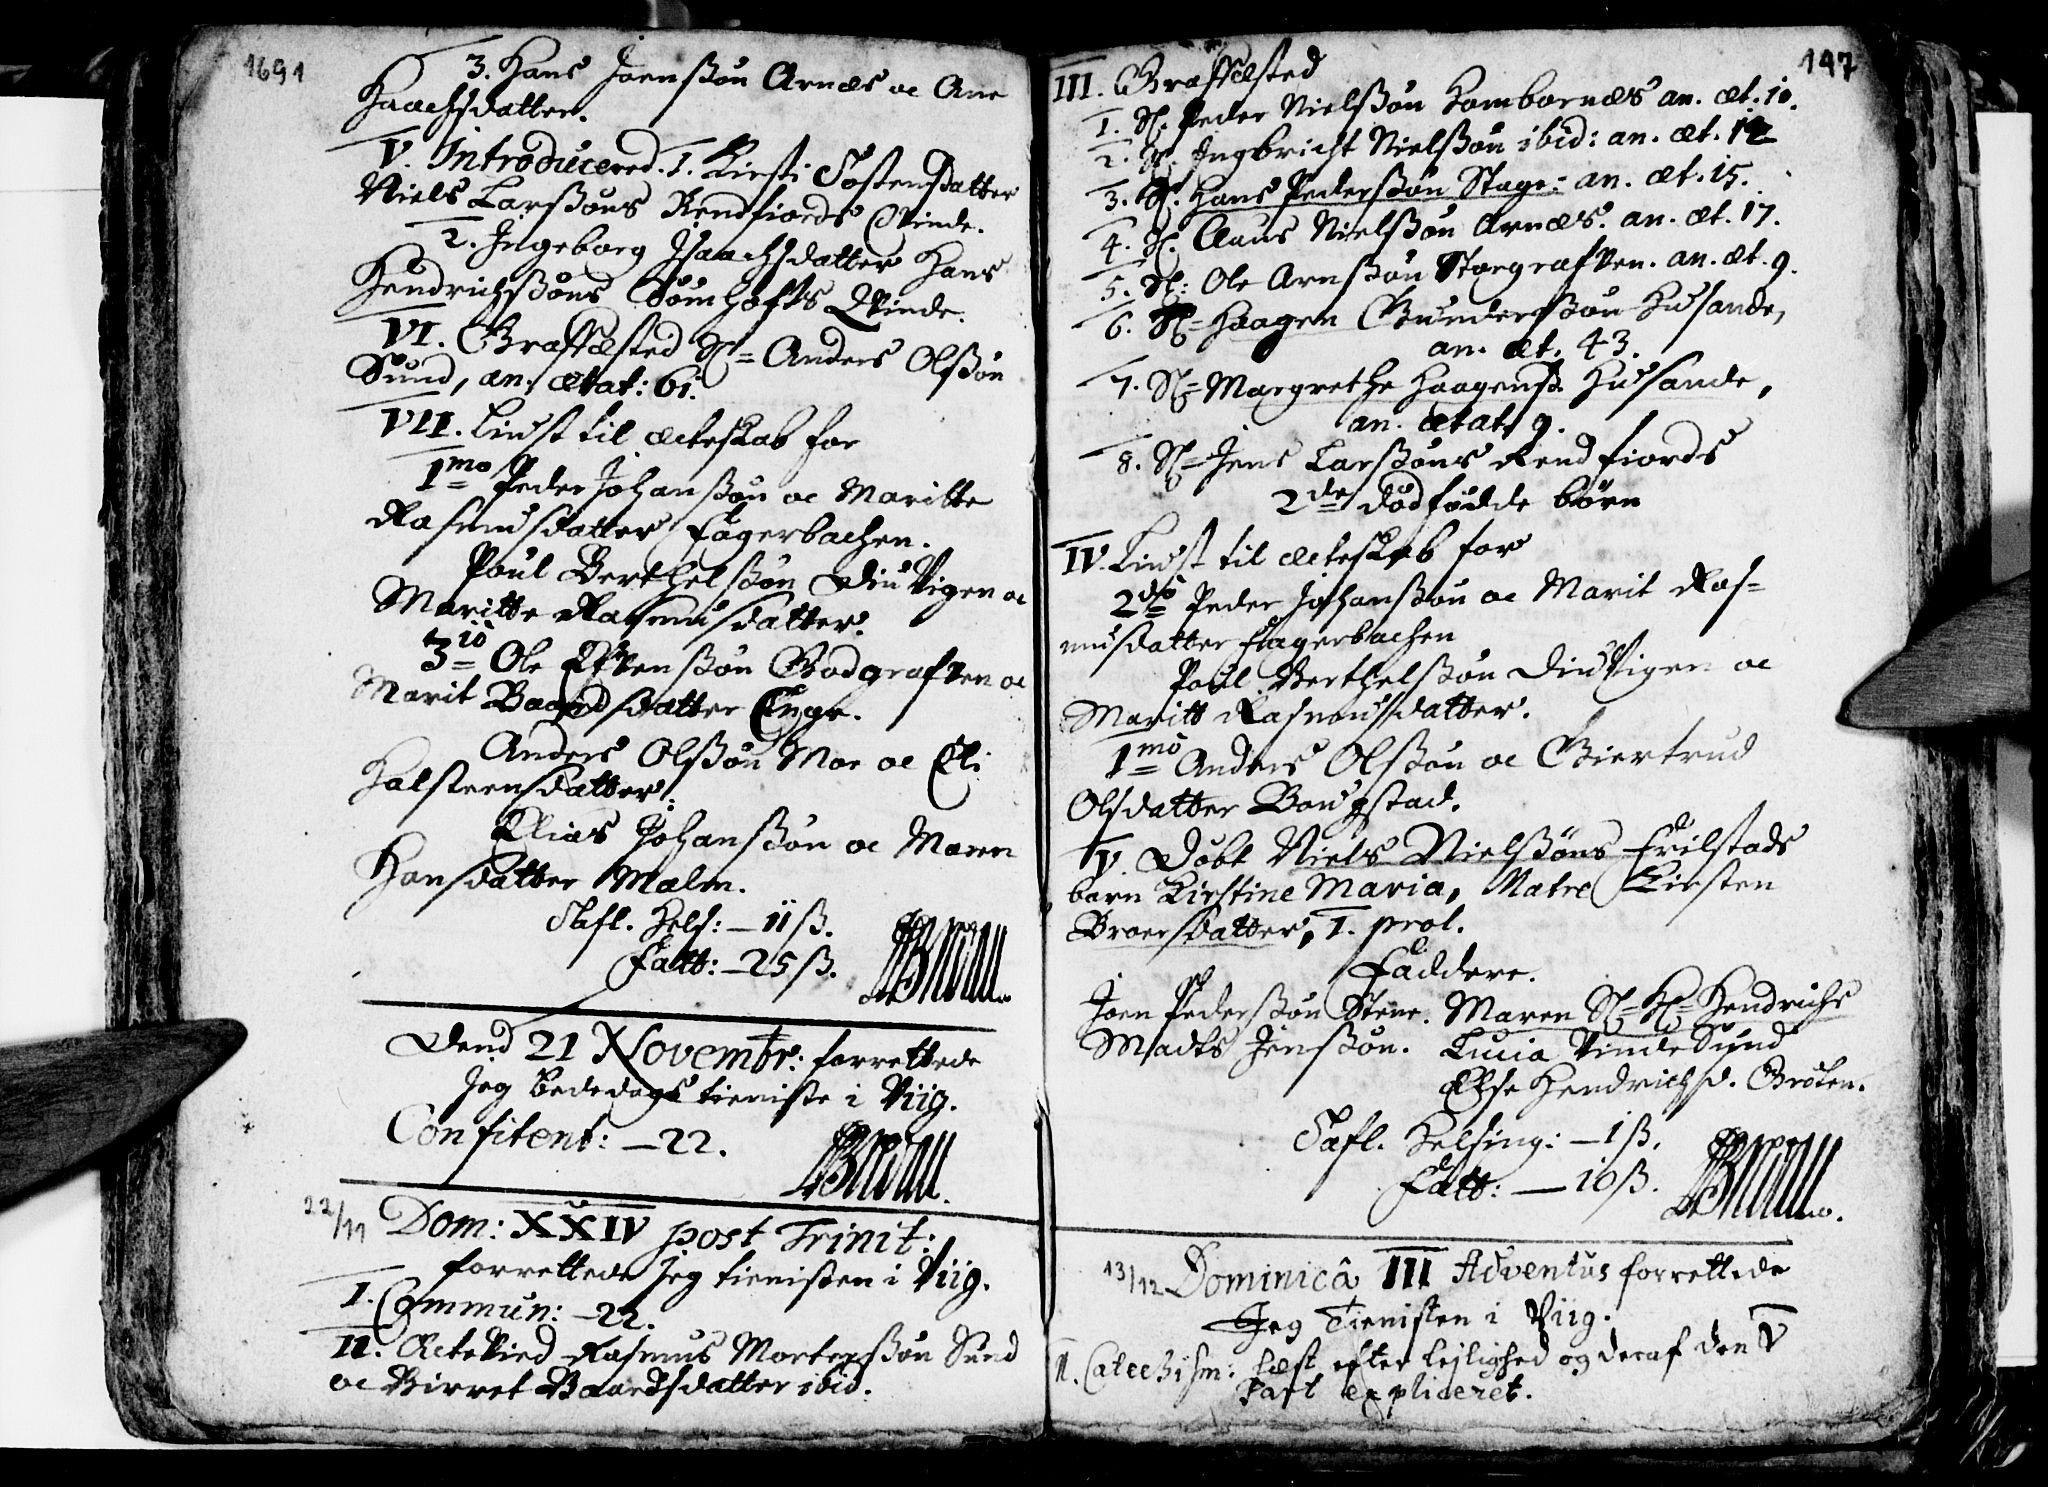 1691
3. Hans Joensßøn Arnæs oc Ane
Haachsdatter.
V. Introducered. 1. Kirsti Tostensdatter
Niels Larsßøns Rendfiords Qvinde.
2. Ingeborg Isaachsdatter Hans
Hendrichsßøns Tømhofts Qvinde.
VI. Grafféstted Sl= Anders Olsßøn
Sund, an. ætat: 61.
VII. Liust til ecteskab for
1mo Peder Johansßøn oc Maritte
Rasmusdatter Fagerbachen.
Poul Berthelsßøn Diuvigen oc
Maritte Rasmusdatter.
3tiö Ole Efvensßøn Godgrafven oc
Marit Baardsdatter Enge.
Anders Olsßøn Moe oc Eli
Halsteensdatter.
Elias Johansßøn oc Maren
Hansdatter Malm.
Tafl. Hels: – 11 ß.
Fatt: – 25 ß.
Dend 21 Novembr: forrettede
jeg bededags tieniste i Viig.
Confitent: – 22.
22/11 Dom: XXIV post Trinit:
forrettede jeg tienisten i Viig.
I. Commun: – 22.
II. Ectevied Rasmus Mortensßøn Sund
oc Birret Baardsdatter ibid.
147
III. Graffæsted
1. Sl. Peder Nielsßøn Hombornæs an. æt. 10.
2. Sl. Ingbricht Nielsßøn ibid: an. æt. 12
3. Sl. Hans Pedersßøn Stage: an. æt. 15.
4. Sl. Claus Nielsßøn Arnæs. an. æt. 17.
5. Sl: Ole Arnsßøn Storgrafven. an. æt. 9.
6. Sl= Haagen Gundersßøn Husande,
an. æt. 43.
7. Sl= Margrethe Haagensd. Husande,
an. ætat. 9.
8. Sl= Jens Larsßøns Rendfiords
2de dødfødde børn
IV. Liust til ecteskab for
2do Peder Johansßøn oc Marit Ras=
musdatter Fagerbachen
Poul Berthelsßøn Diuvigen oc
Maritt Rasmusdatter.
1mo Anders Olsßøn oc Giertrud
Olsdatter Bougstad.
V. Døbt Niels Nielsßøns Frilstads
barn Kirstine Maria, Matre Kirsten
Broersdatter, I. prol.
Faddere.
Joen Pedersßøn Stene. Maren Sl= Hr= Hendrichs
Madts Jensßøn. Lucia Vinde Sund
Else Hendrichsd. Brøten.
Tafl. Helsing: – 1 ß.
Fatt: – 10 ß.
13/12 Dominicâ III Adventus forrettede
Jeg Tienisten i Viig.
II. Catechism: læst efter lejlighed og deraf den V
Part expliceret.